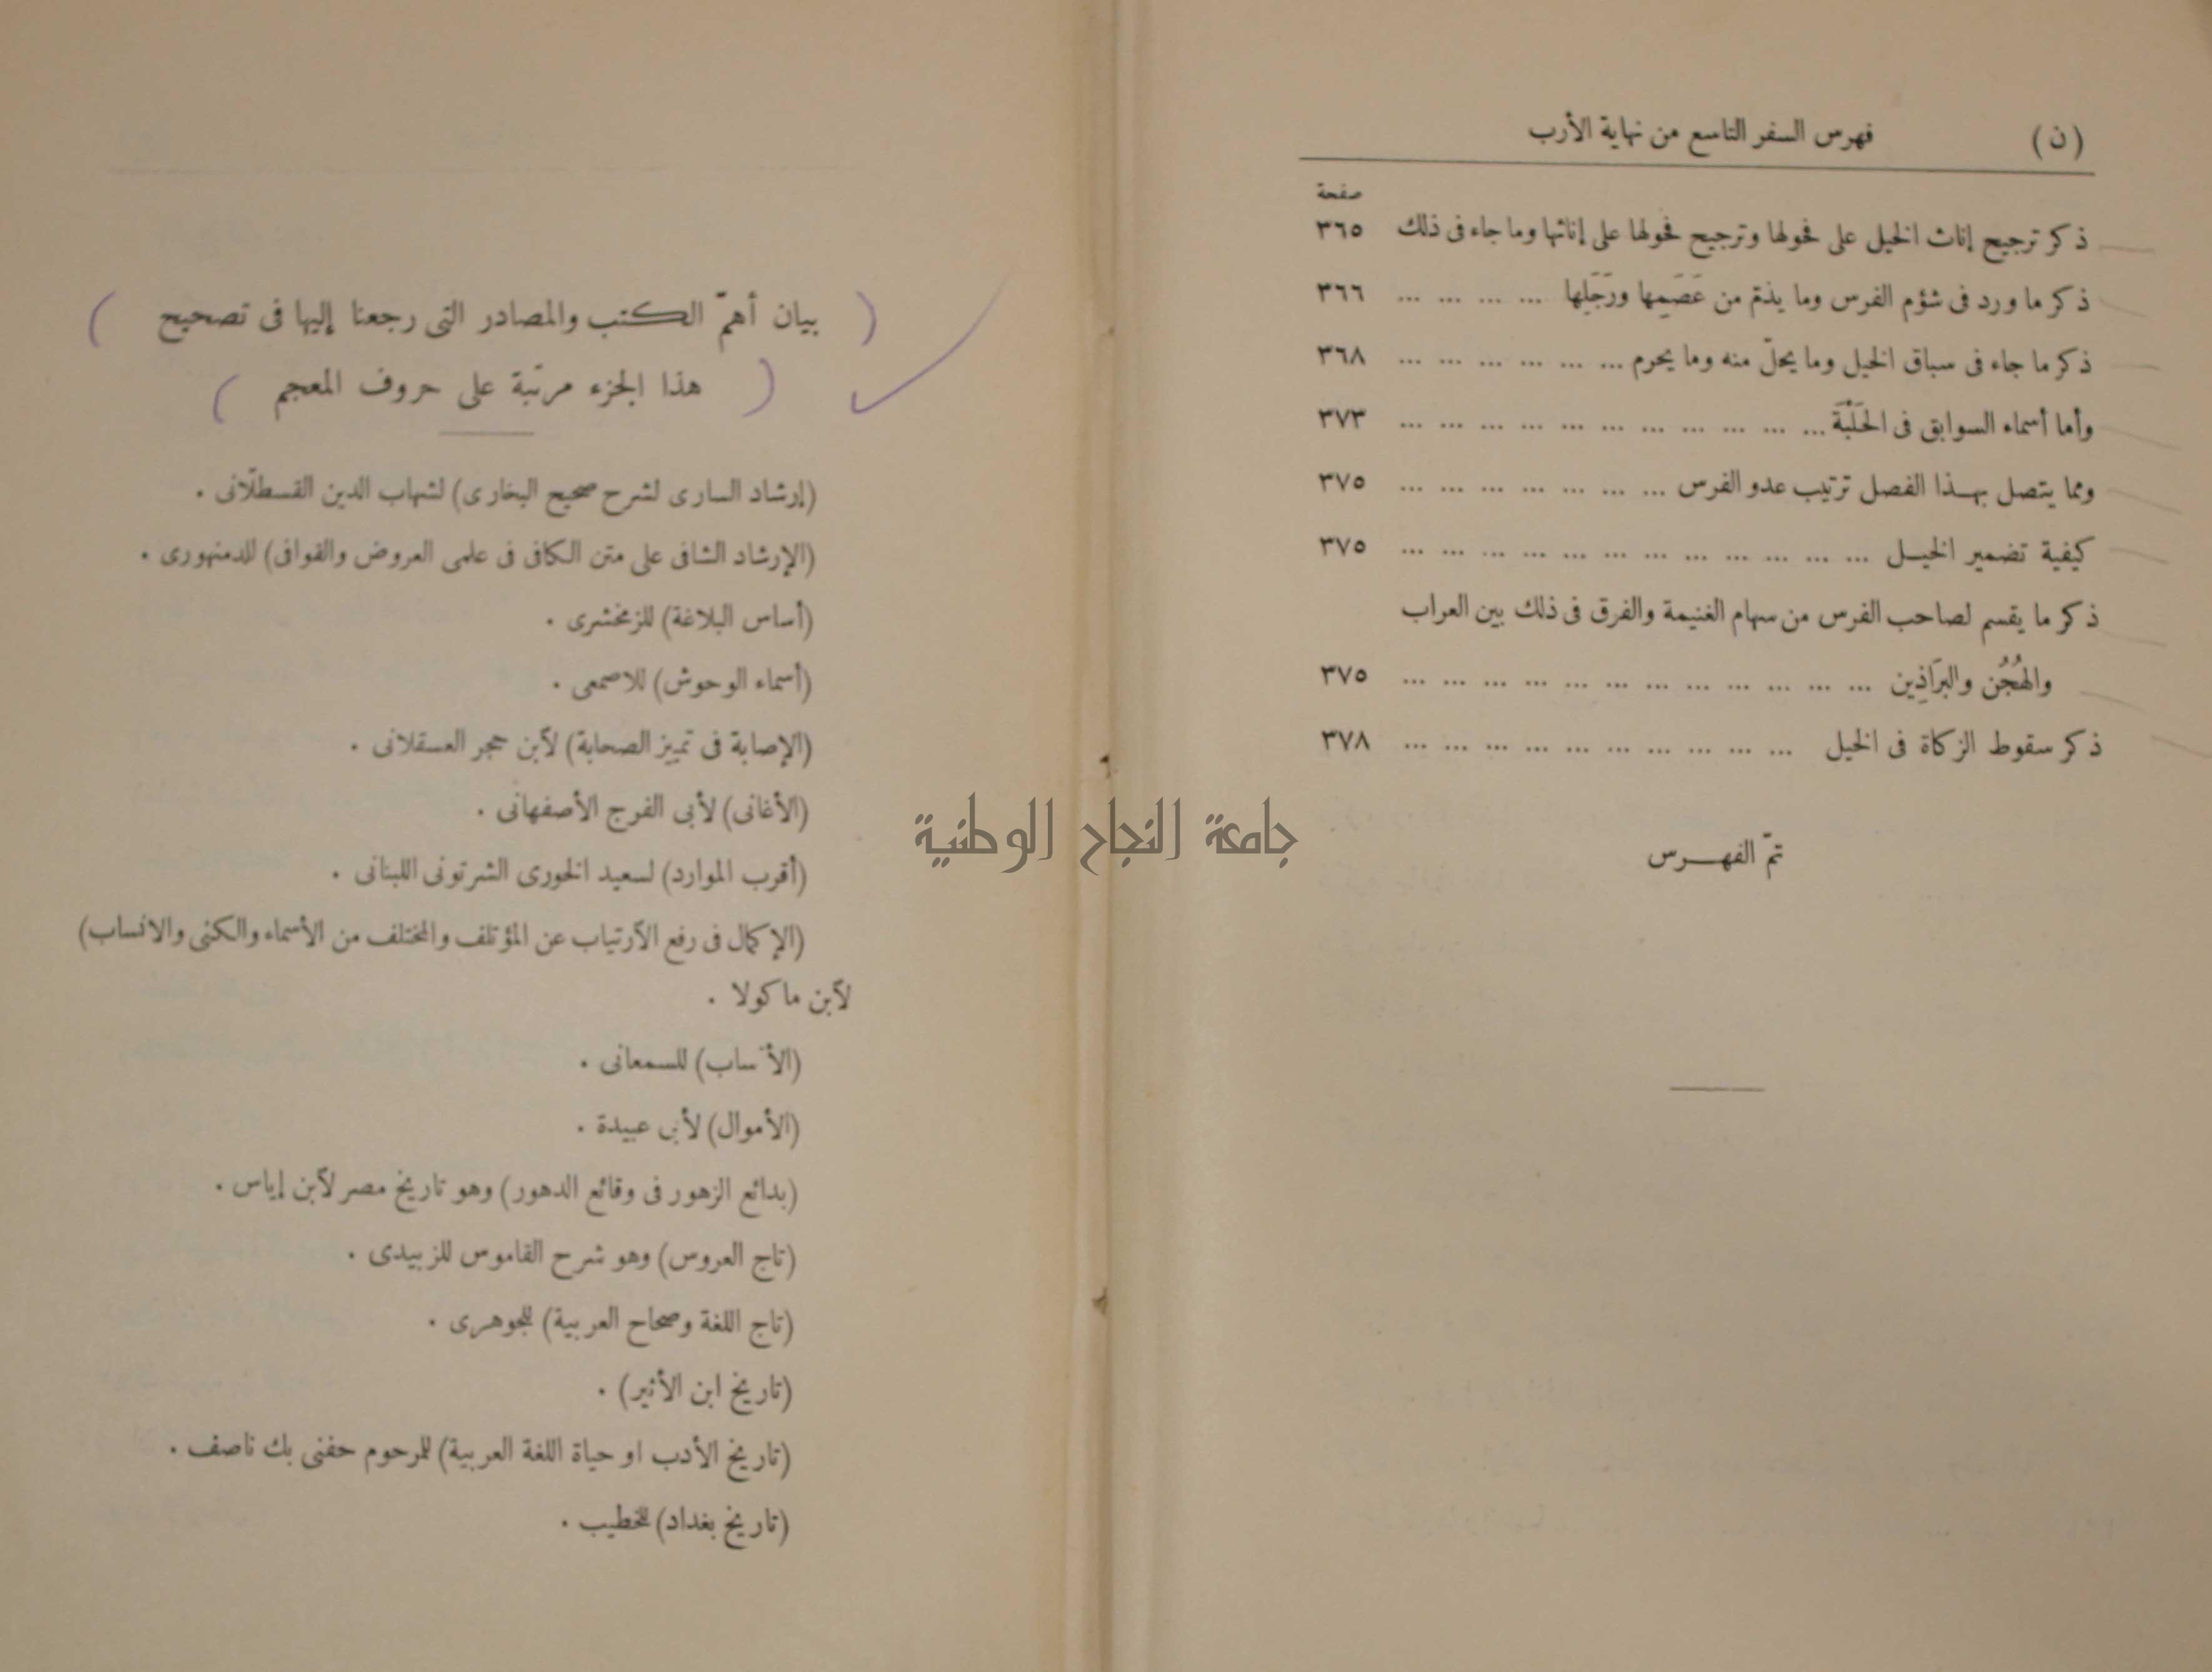 (ن) فهرس السفر التاسع من نهاية الأرب
صفحة
ذكر ترجيح إناث الخيل على فحولها وترجيح فحولها على إناثها وما جاء فى ذلك ٣٦٥
ذكر ما ورد فى شؤم الفرس وما يذم من عَصَمِها ورَجَلِها ... ... ... ... ٣٦٦
ذكر ما جاء فى سباق الخيل وما يحلّ منه وما يحرم ... ... ... ... ... ... ٣٦٨
وأما أسماء السوابق فى الحَلْبَة ... ... ... ... ... ... ... ... ... ... ... ٣٧٣
ومما يتصل بهذا الفصل ترتيب عدو الفرس ... ... ... ... ... ... ... ٣٧٥
كيفية تضمير الخيل ... ... ... ... ... ... ... ... ... ... ... ... ٣٧٥
ذكر ما يقسم لصاحب الفرس من سهام الغنيمة والفرق فى ذلك بين العراب
والهُجُن والبَرَاذِين ... ... ... ... ... ... ... ... ... ... ... ... ٣٧٥
ذكر سقوط الزكاة فى الخيل ... ... ... ... ... ... ... ... ... ... ٣٧٨
تمّ الفهرس
جامعة النجاح الوطنية
( بيان أهمّ الكتب والمصادر التى رجعنا إليها فى تصحيح )
( هذا الجزء مرتبة على حروف المعجم )
(إرشاد السارى لشرح صحيح البخارى) لشهاب الدين القسطلّانى .
(الإرشاد الشافى على متن الكافى فى علمى العروض والقوافى) للدمنهورى .
(أساس البلاغة) للزمخشرى .
(أسماء الوحوش) للاصمعى .
(الإصابة فى تمييز الصحابة) لآبن حجر العسقلانى .
(الأغانى) لأبى الفرج الأصفهانى .
(أقرب الموارد) لسعيد الخورى الشرتونى اللبنانى .
(الإكمال فى رفع الآرتياب عن المؤتلف والمختلف من الأسماء والكنى والانساب)
لآبن ماكولا .
(الأنساب) للسمعانى .
(الأموال) لأبى عبيدة .
(بدائع الزهور فى وقائع الدهور) وهو تاريخ مصر لآبن إياس .
(تاج العروس) وهو شرح القاموس للزبيدى .
(تاج اللغة وصحاح العربية) للجوهرى .
(تاريخ ابن الأثير) .
(تاريخ الأدب او حياة اللغة العربية) للمرحوم حفنى بك ناصف .
(تاريخ بغداد) للخطيب .